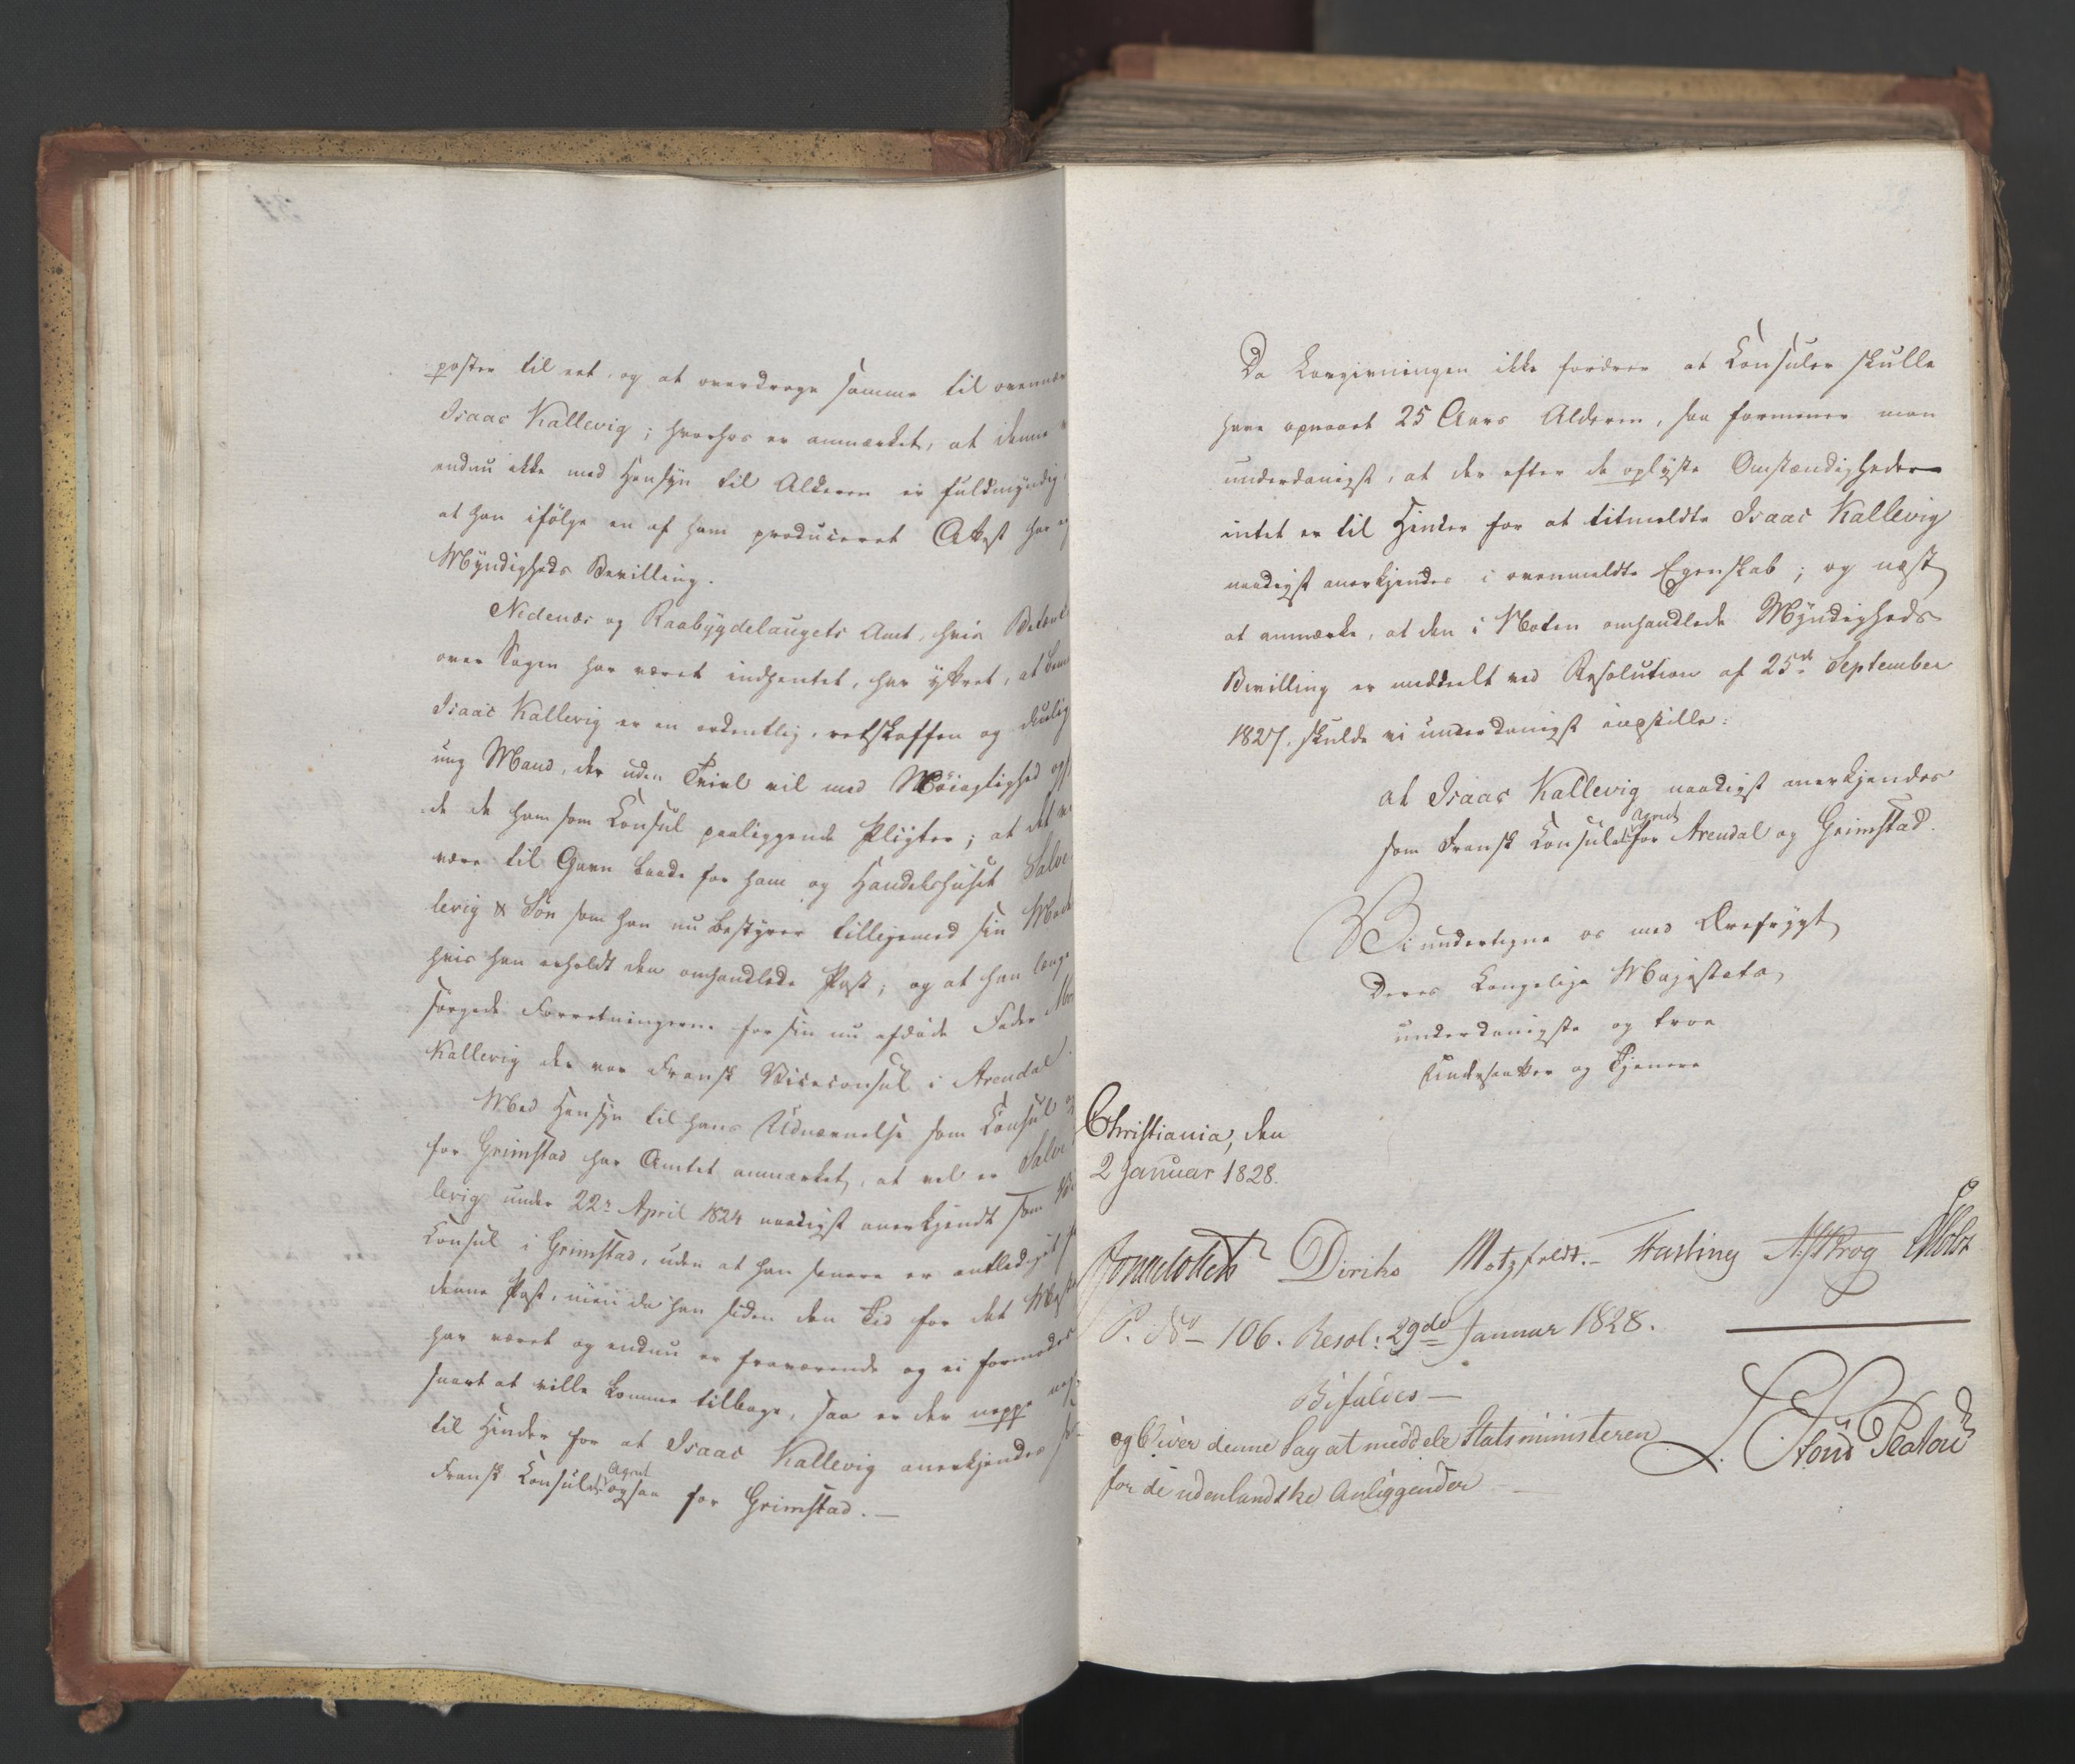 poster til eet, og at overdrage samme til ovennæv
Isaac Kallevig; hvorhos er anmærket, at denne
endnu ikke med Hensyn til Alderen er fuldmyndig,
at han ifølge en af ham produceret Attest har
Myndigheds Bevilling.
Nedenæs og Raabygdelaugets Amt, hvis Betænk
over Sagen har været indhentet, har yttret, at bem
Isaac Kallevig er en ordentlig, retskaffen og duelig
ung Mand, der uden Tvivl vil med Nøiagtighed opf
de de ham som Consul paaliggende Pligter; at det v
være til Gavn baade for ham og Handelshuset Salve
levig & Søn som han nu bestyrer tilligemed sin Mod
hvis han erholdt den omhandlede Post; og at han længe
sørgede Forretningerne for sin nu afdøde Fader Abr
Kallevig der var Fransk Viceconsul i Arendal.
Med Hensyn til hans Udnævnelse som Consul og
for Grimstad har Amtet anmærket, at vel er Salve
levig under 22r April 1824 naadigst anerkjendt som Vi
Consul i Grimstad, uden at han senere er entlediget fr
denne Post, men da han siden den Tid for det Meste
har været og endnu er fraværende og ei formodes
snart at ville komme tilbage, saa er der neppe nog
til Hinder for at Isaac Kallevig anerkjendes so
Agent
Fransk Consulats ogsaa for Grimstad. —
Da Lovgivningen ikke fordrer at Consuler skulle
have opnaaet 25 Aars Alderen, saa formener man
underdanigst, at der efter de oplyste Omstændigheder
intet er til Hinder for at titmeldte Isaac Kallevig
naadigst anerkjendes i ovenmeldte Egenskab; og næst
at anmærke, at den i Noten omhandlede Myndigheds
Bevilling er meddeelt ved Resolution af 25de September
1827, skulde vi underdanigst indstille:
at Isaac Kallevig naadigst anerkjendes
Agent
som Fransk Consulats for Arendal og Grimstad.
Vi undertegne os med Ærefrygt
Deres Kongelige Majestæts
underdanigste og troe
Undersaatter og Tjenere
Christiania, den
2 Januar 1828.
Jonas Collett Diriks Motzfeldt. Fasting Krog Holst
P. No 106. Resol: 29de Januar 1828.
Bifaldes —
og bliver denne Sag at meddele Statsministeren
for de udenlandske Anliggender —